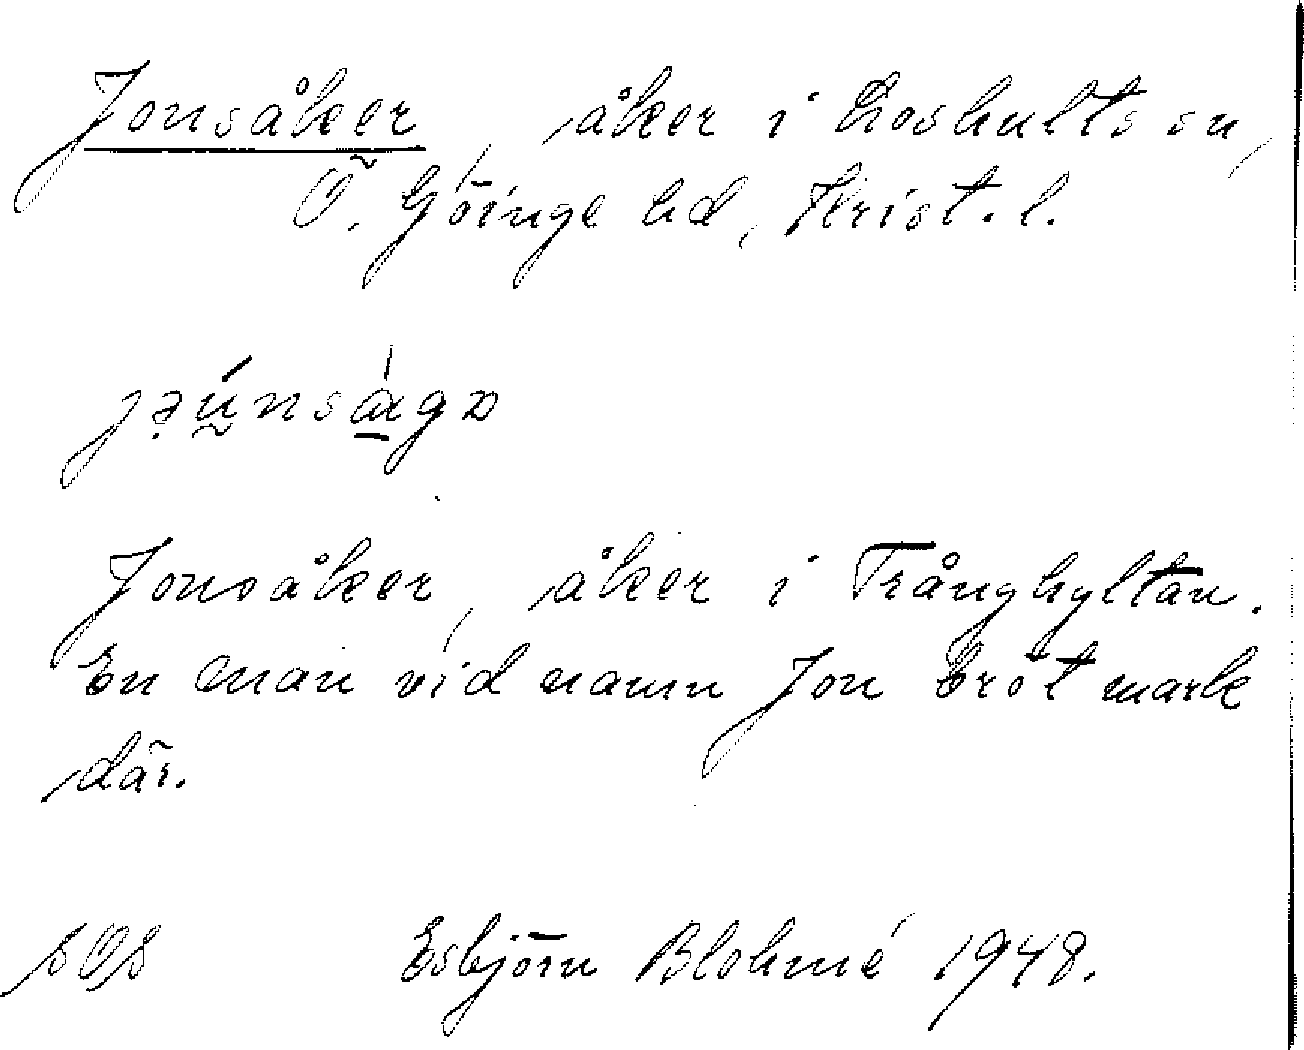 Jonsåker, åker i Loshults sn,
Ö. Göinge hd, Krist. l.
Jonsåker, åker i Trånghyltan.
En man vid namn Jon bröt mark
där.
SOS Esbjörn Blohmé 1948.